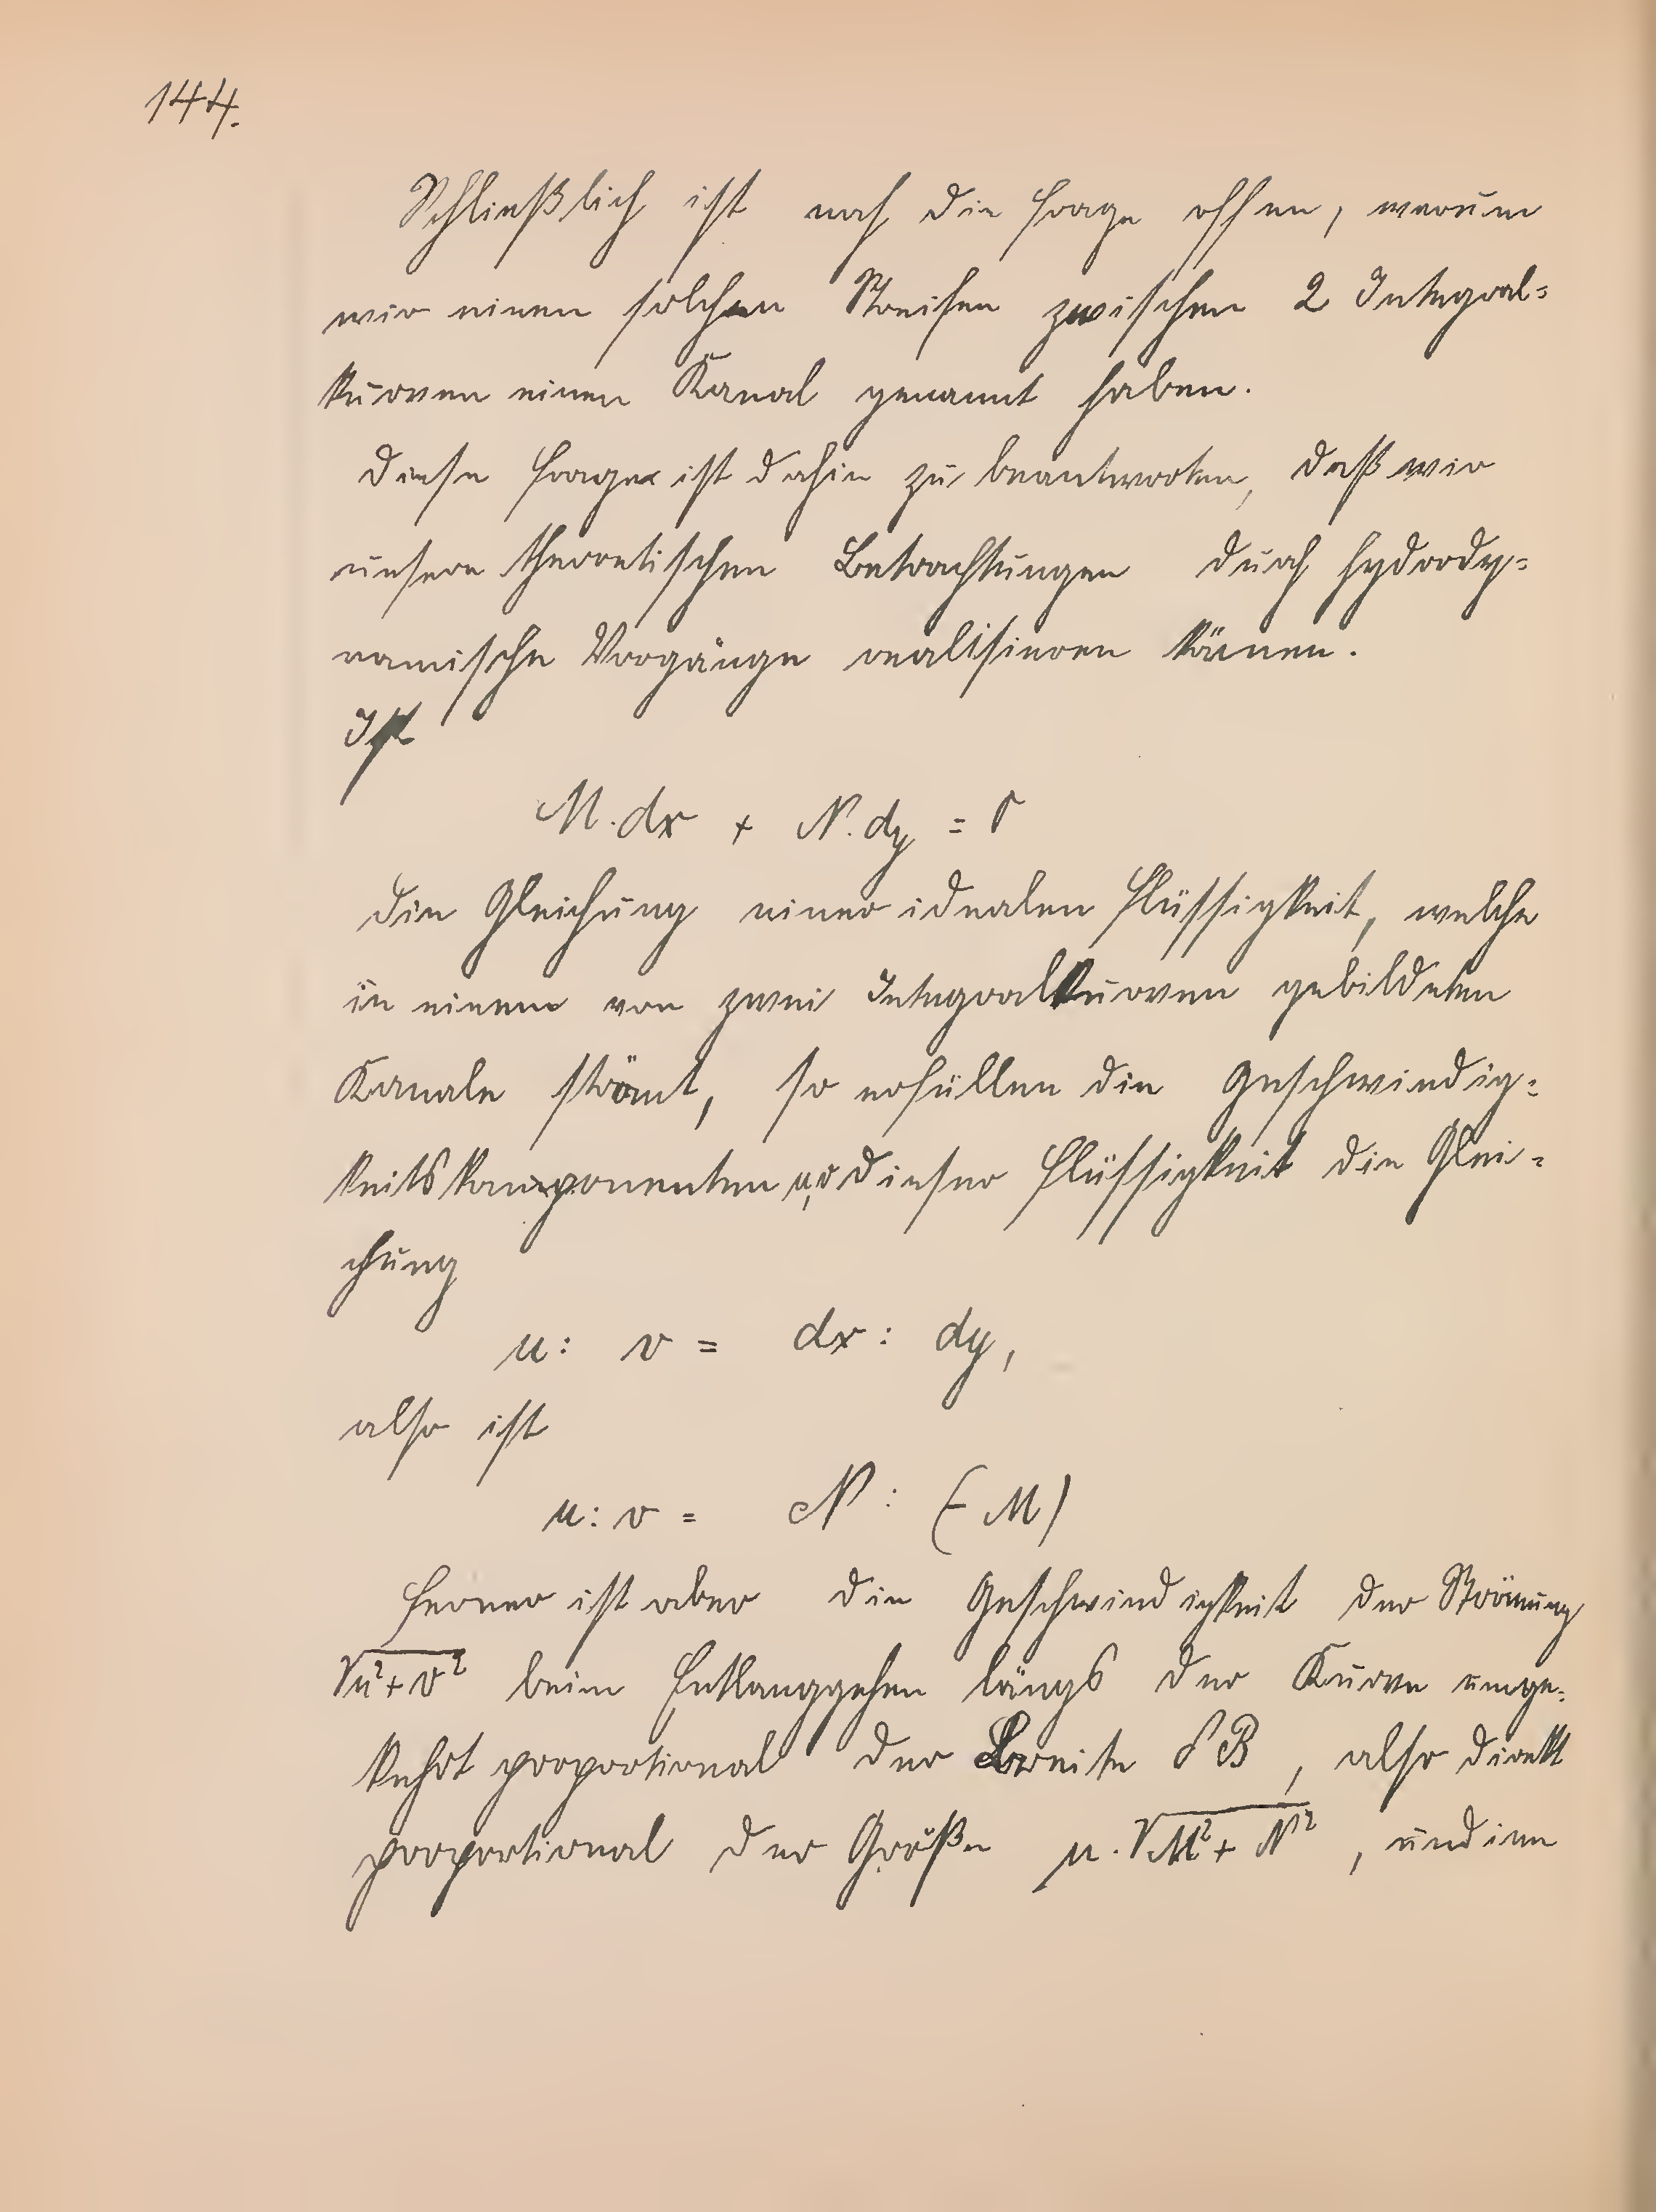 144.
Schließlich ist noch die Frage offen, warum
wir einen solchen Streifen zwischen 2 Integral=
kurven einen Kanal genannt haben.
Diese Frage ist dahin zu beantworten, daß wir
unsere theoretischen Betrachtungen durch hydrody=
namische Vorgänge realisieren können.
Ist
M.dx + N.dy = 0
die Gleichung einer idealen Flüssigkeit, welche
in einem von zwei Integralkurven gebildeten
Kanale strömt, so erfüllen die Geschwindig=
keitskomponenten u,v dieser Flüssigkeit die Glei=
chung
u: v = dx: dy,
also ist
u: v = N: (-M)
Ferner ist aber die Geschwindigkeit der Strömung
√u²+v² beim Entlanggehen längs der Kurve umge=
kehrt proportional der Breite δB, also direkt
proportional der Größe μ.√M²+N², und im